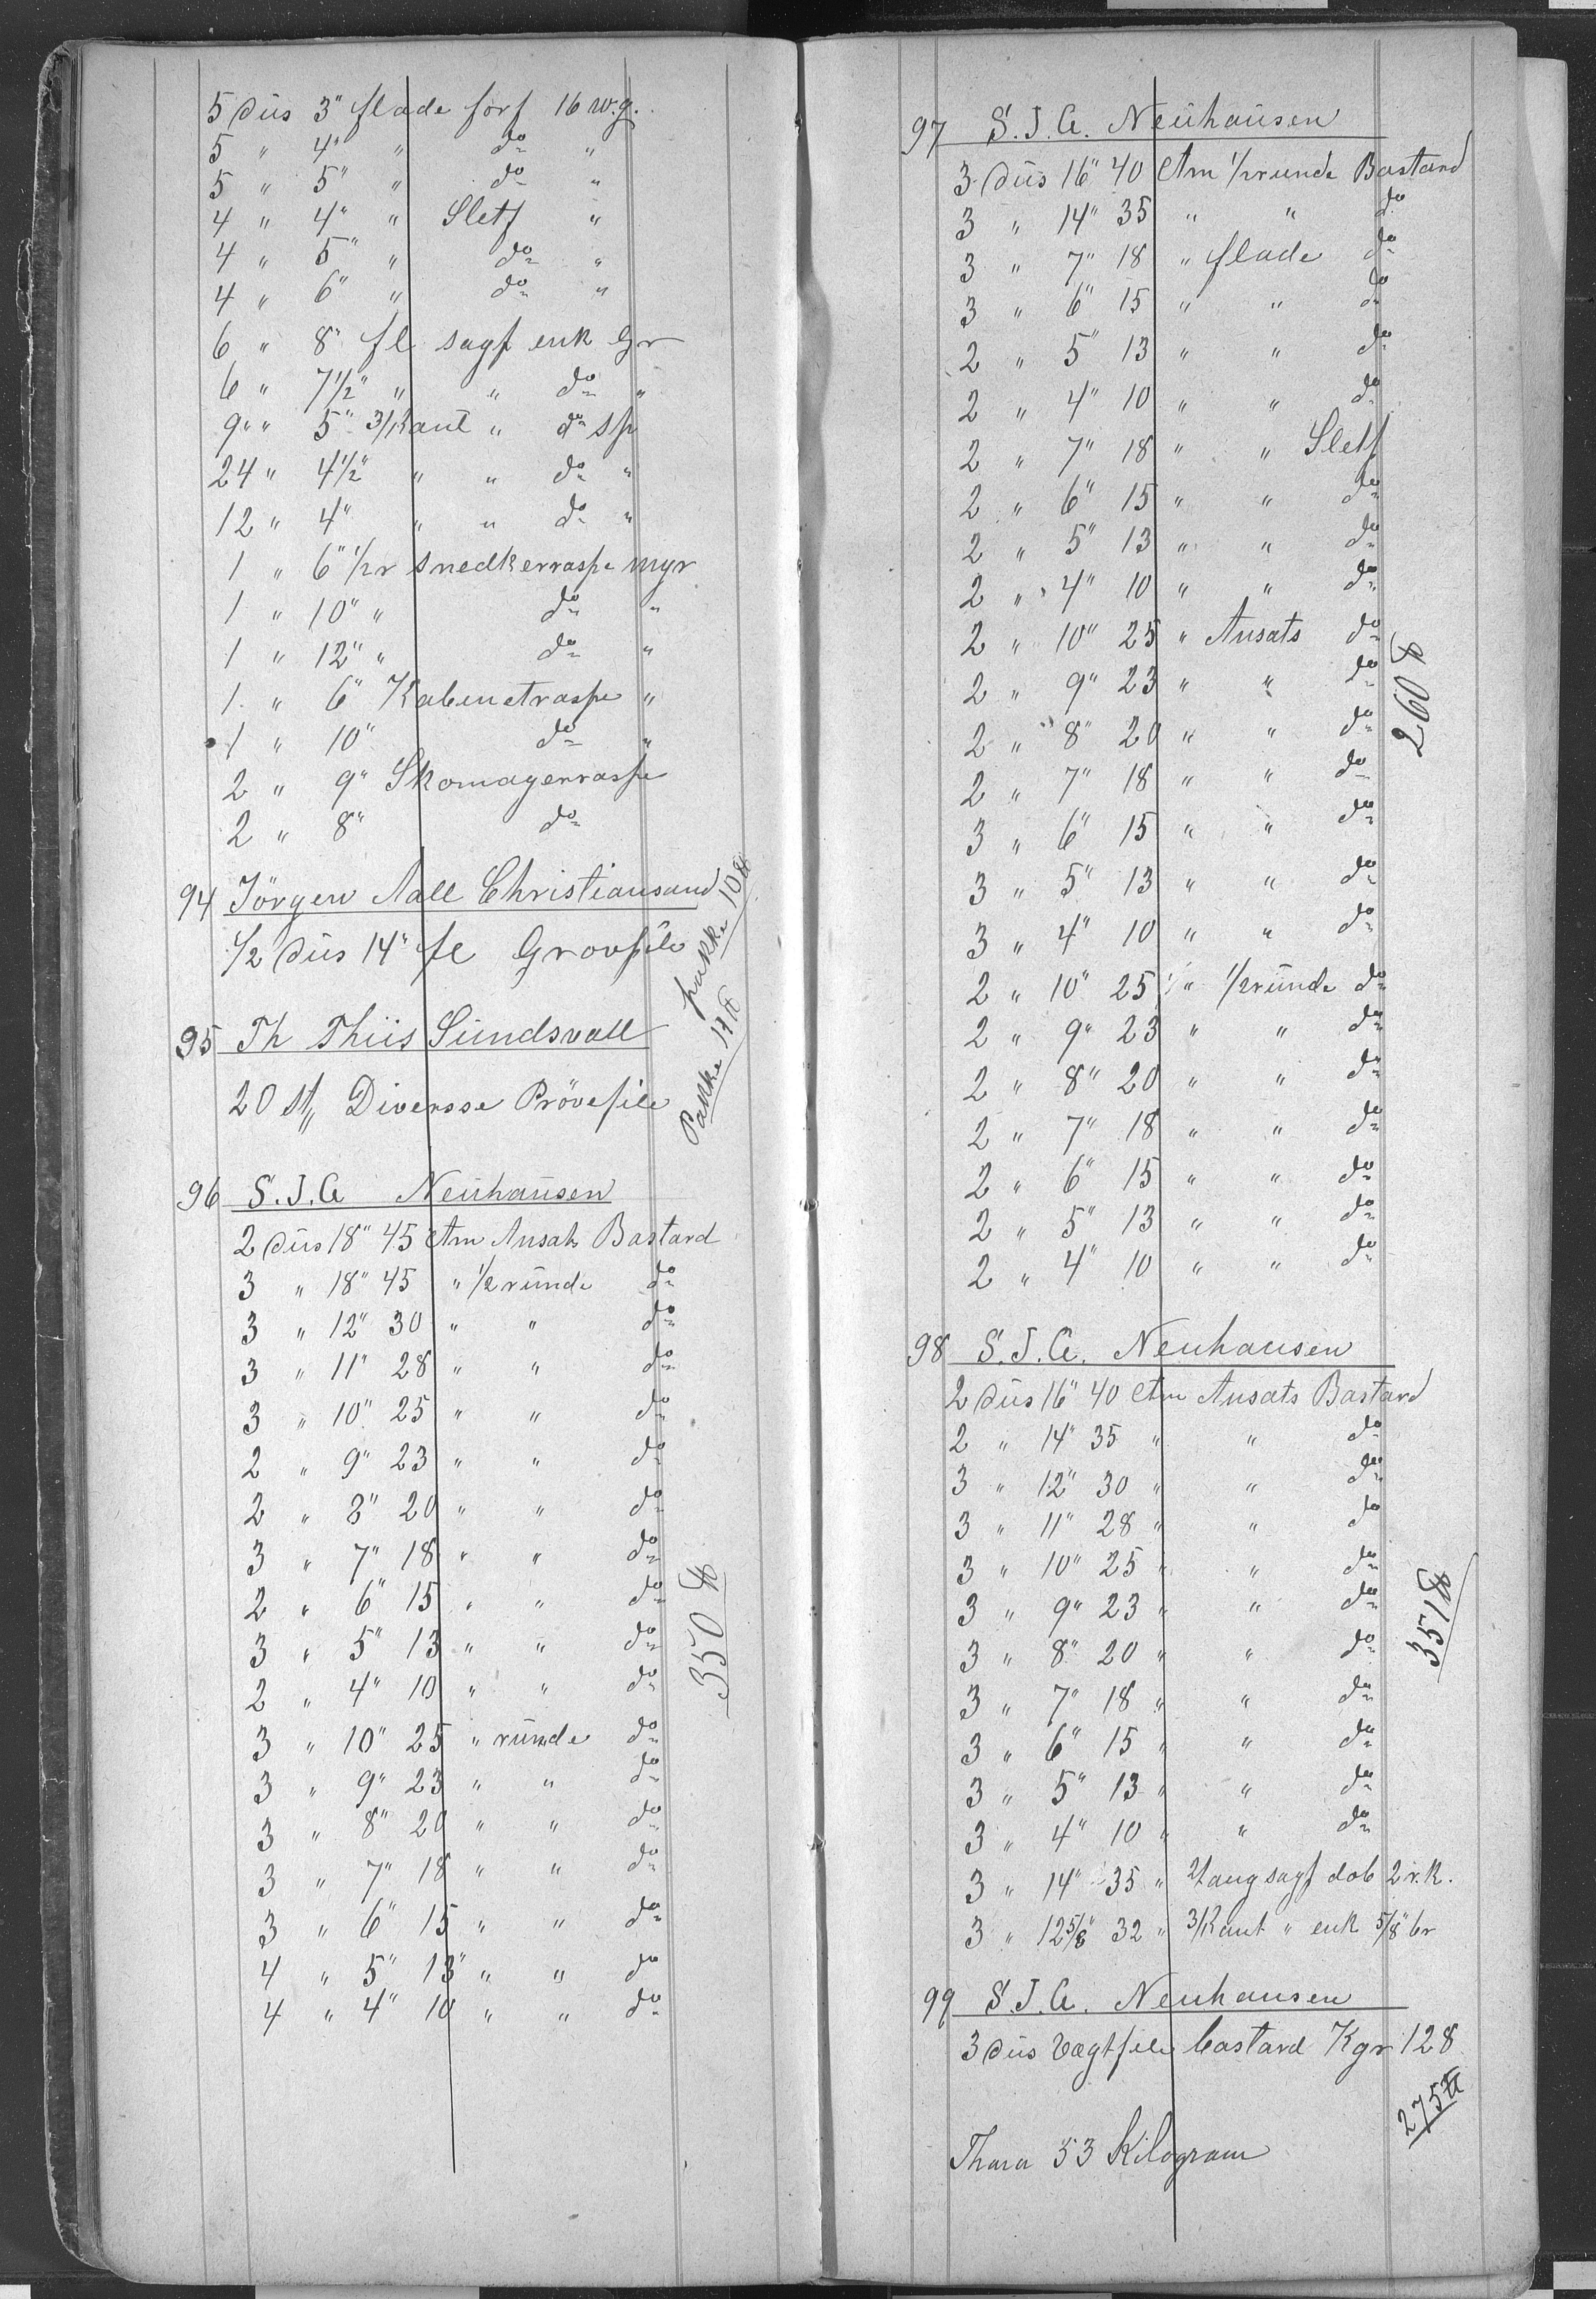 5 düs 3" flade forf 16 w.g.
5 " 4" " do "
5 " 5" " do "
4 " 4" " Sletf "
4 " 5" " do "
4 " 6" " do "
6 " 8" fl sagf enk Gr
6 " 7½" " " do "
9 " " 5" 3/Kant " do sp
24 " 4½" " " do "
12 " 4" " " do "
1 " 6" ½r snedkerraspe myr
1 " 10" " do "
1 " 12" " do "
1 " 6" Kabenetraspe "
1 " 10" do "
2 " 9" Skomagerraspe
2 " 8" do
94 Jörgen Aall Christiansand
½ düs 14" fl Grovfile
pakke 10 ℔
95 Th Thiis Sundsvall
20 st, Diversse Prövefile
Pakke 17 ℔
96 S.J.A Neühaüsen
2 düs 18" 45 Ctm Ansats Bastard
3 " 18" 45 " ½ründe do
3 " 12" 30 " " do
3 " 11" 28 " " do
3 " 10" 25 " " do
2 " 9" 23 " " do
2 " 8" 20 " " do
3 " 7" 18 " " do
2 " 6" 15 " " do
3 " 5" 13 " " do
2 " 4" 10 " " do
3 " 10" 25 " ründe do
3 " 9" 23 " " do
3 " 8" 20 " " do
3 " 7" 18 " " do
3 " 6" 15 " " do
4 " 5" 13 " " do
4 " 4" 10 " " do
350 ℔
97 S.J.A. Neühaüsen
3 düs 16" 40 Ctm ½runde Bastard
3 " 14" 35 " " do
3 " 7" 18 " flade do
3 " 6" 15 " " do
2 " 5" 13 " " do
2 " 4" 10 " " do
2 " 7" 18 " " Sletf
2 " 6" 15 " " do
2 " 5" 13 " " do
2 " 4" 10 " " do
2 " 10" 25 " Ansats do
2 " 9" 23 " " do
2 " 8" 20 " " do
2 " 7" 18 " " do
3 " 6" 15 " " do
3 " 5" 13 " " do
3 " 4" 10 " " do
2 " 10" 25 " ½ründe do
2 " 9" 23 " " do
2 " 8" 20 " " do
2 " 7" 18 " " do
2 " 6" 15 " " do
2 " 5" 13 " " do
2 " 4" 10 " " do
260 ℔
98 S.J.A. Neuhausen
2 düs 16" 40 Ctm Ansats Bastard
2 " 14" 35 " " do
3 " 12" 30 " " do
3 " 11" 28 " " do
3 " 10" 25 " " do
3 " 9" 23 " " do
3 " 8" 20 " " do
3 " 7" 18 " " do
3 " 6" 15 " " do
3 " 5" 13 " " do
3 " 4" 10 " " do
3 " 14" 35 " sagf dob 2 r.k.
3 " 12⅝" 32 " 3/Kant " enk ⅝" br
351 ℔
99 S.J.A. Neuhausen
3 düs Vægtfile bastard Kgr 128
275 ℔
Thara 53 Kilogram